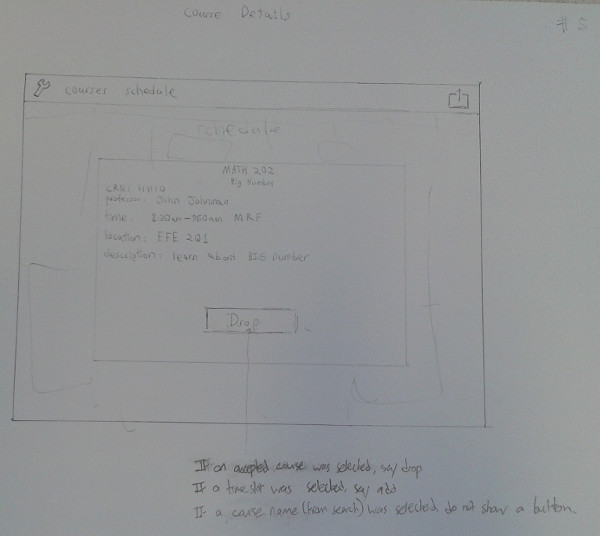 Course Details
# 5
courses schedule
schedule
MATH 202
Big Number
CRN: 11110
professor: John Johnman
time: 8:30am - 9:50am MRF
location: EFE 201
description: learn about BIG number
Drop
If an accepted course was selected, say drop
If a time slot was selected, say add
If a course name (from search) was selected, do not show a button.